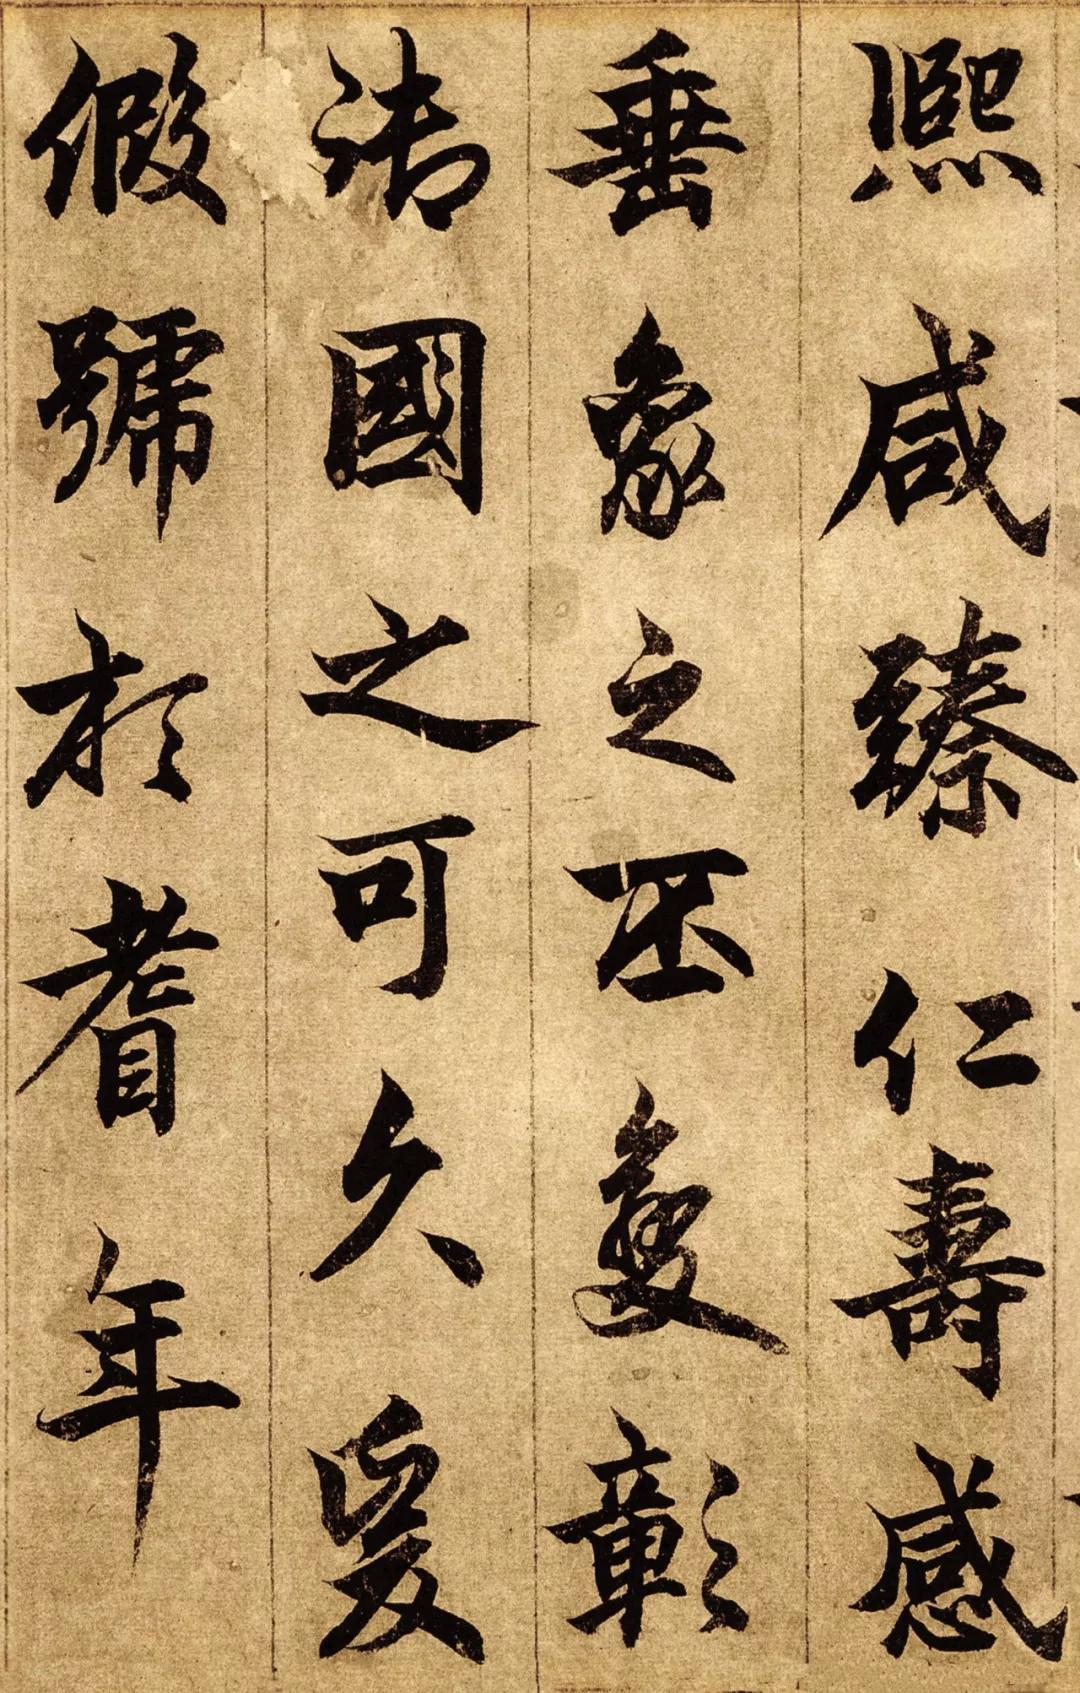 熙咸臻仁壽感
垂象之丕變彰
清國之可久爰
假號於耆年